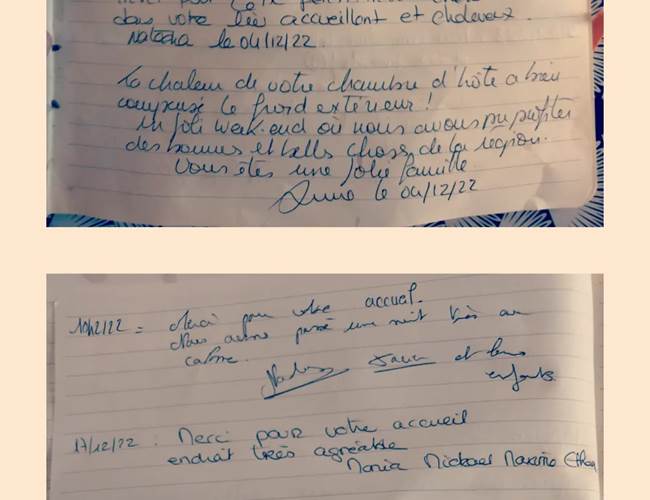 dans votre très accueillant et chaleureux.
Natacha le 04/12/22.
La chaleur de votre chambre d'hôte a bien
compensé le froid extérieur !
Un joli week-end où nous avons pu profiter
des bonnes et belles choses de la région.
Vous êtes une jolie famille
le 04/12/22
10/12/22 = Merci pour votre accueil.
Nous avons passé une nuit très au
calme.
et leurs
enfants.
17/12/22 : Merci pour votre accueil
endroit très agréable
Maria Mickael Maxime Ethan